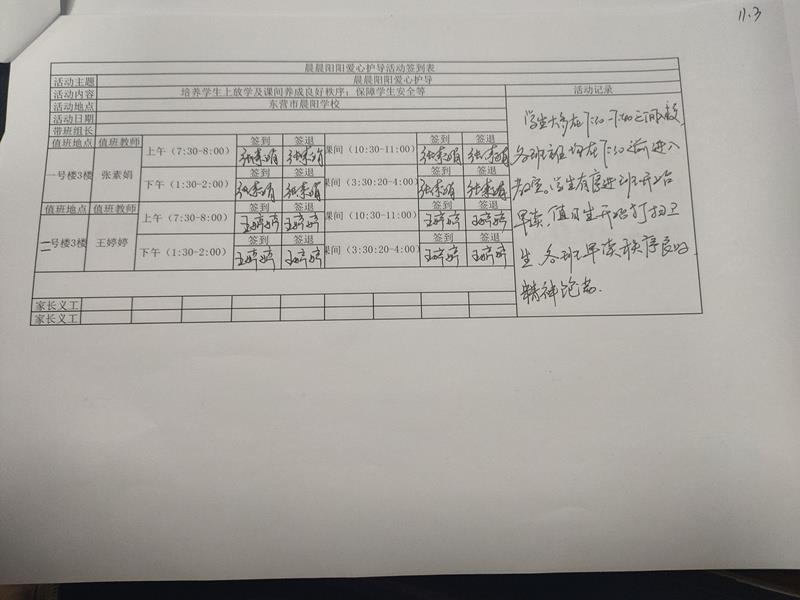 11.3
晨晨阳阳爱心护导活动签到表
活动主题 晨晨阳阳爱心护导 活动记录
活动内容 培养学生上放学及课间养成良好秩序；保障学生安全等
活动地点 东营市晨阳学校
活动日期
带班组长
值班地点 值班教师 上午（7:30-8:00） 签到 签退 课间（10:30-11:00） 签到 签退
张素娟 张素娟 张素娟 张素娟
一号楼3楼 张素娟 下午（1:30-2:00） 签到 签退 课间（3:30:20-4:00） 签到 签退
张素娟 张素娟 张素娟 张素娟
值班地点 值班教师 上午（7:30-8:00） 签到 签退 课间（10:30-11:00） 签到 签退
王婷婷 王婷婷 王婷婷 王婷婷
二号楼3楼 王婷婷 下午（1:30-2:00） 签到 签退 课间（3:30:20-4:00） 签到 签退
王婷婷 王婷婷 王婷婷 王婷婷
家长义工
家长义工
学生大多在7:10-7:40之间到校
各班主任均在7:30前进入
教室。学生有序进班开始
早读，值日生开始打扫卫
生，各班早读秩序良好
精神饱满.